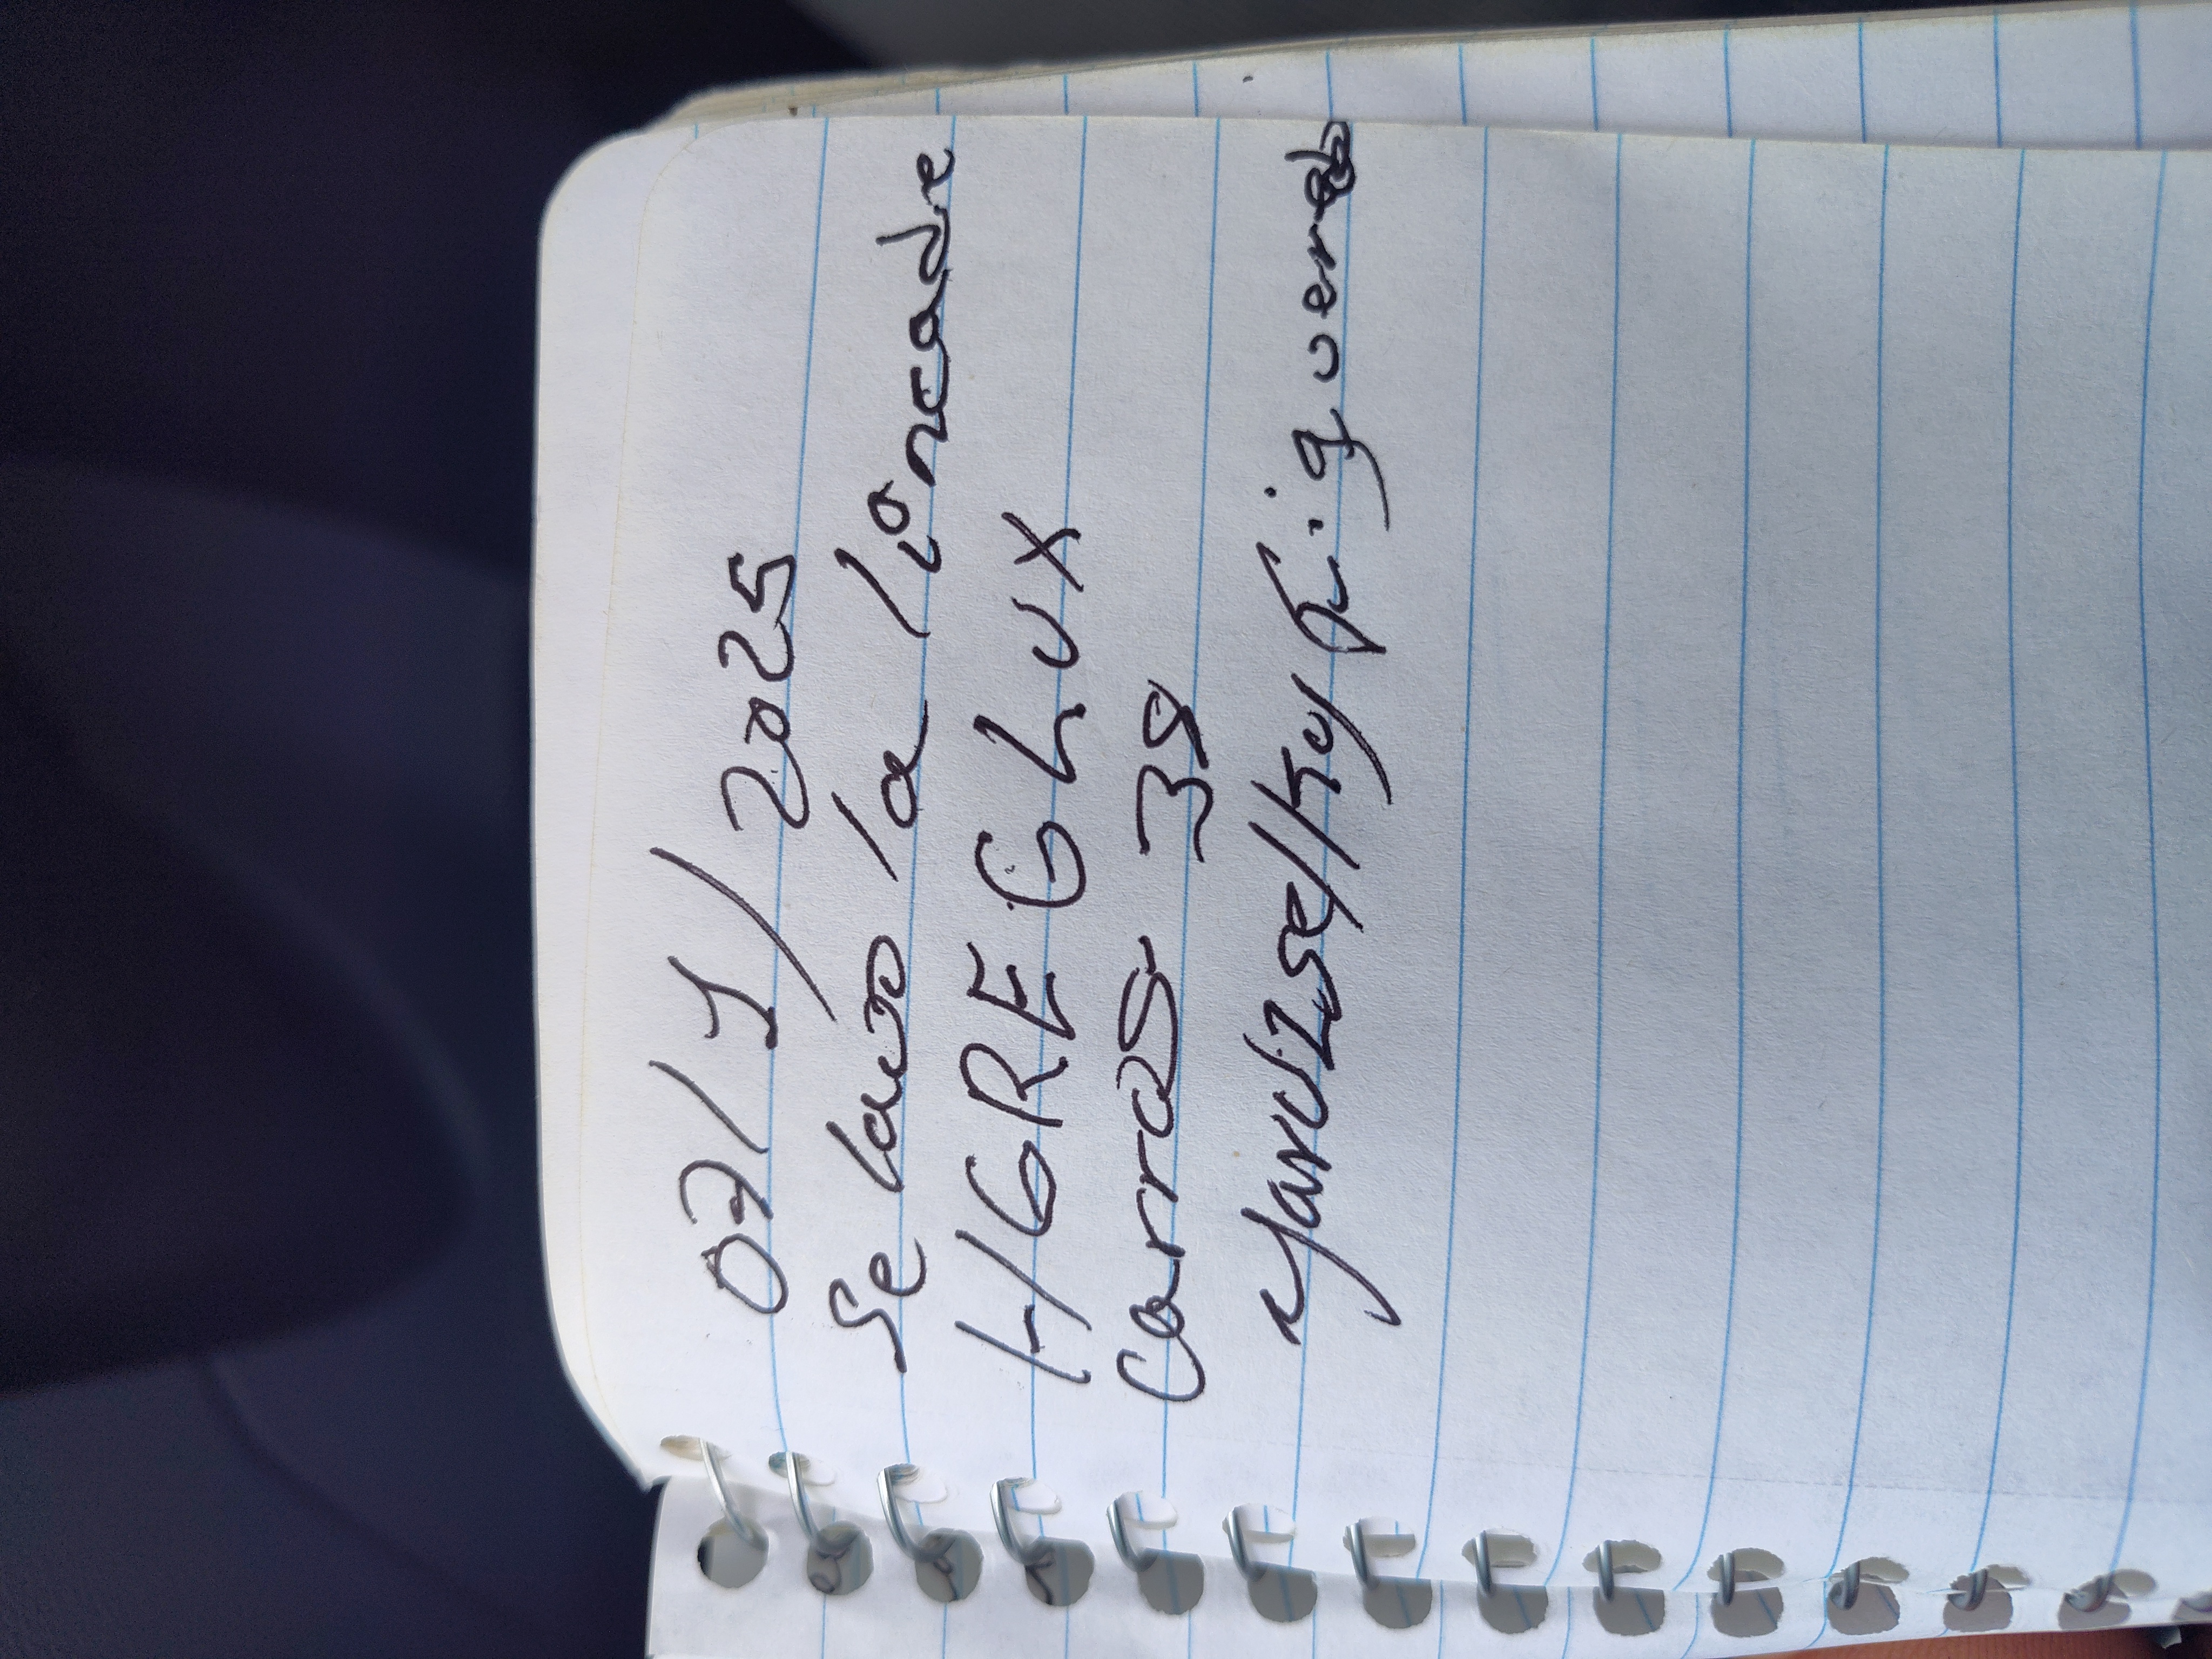 07/1/2025
Se lavo la lonea de
HGREG LUX
Carros 39
Yarvizselky Figueroa